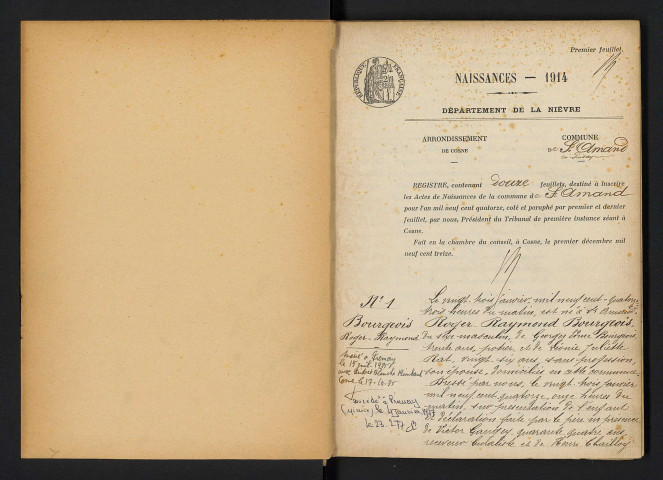 Premier feuillet.
RÉPUBLIQUE FRANÇAISE
NAISSANCES — 1914
DÉPARTEMENT DE LA NIÈVRE
ARRONDISSEMENT
DE COSNE
COMMUNE
DE St Amand
REGISTRE, contenant douze feuillets, destiné à inscrire
les Actes de Naissances de la commune de St Amand
pour l'an mil neuf cent quatorze, coté et paraphé par premier et dernier
feuillet, par nous, Président du Tribunal de première instance séant à
Cosne.
Fait en la chambre du conseil, à Cosne, le premier décembre mil
neuf cent treize.
N° 1
Bourgeois
Roger. Raymond
Le vingt trois janvier mil neuf cent quatorze
trois heures du matin, est né à St Amand
Roger. Raymond Bourgeois.
du sexe masculin, de Georges Bourgeois
trente ans, potier, et de
vingt six ans, sans profession,
son épouse, domiciliés en cette commune
Dressé par nous, le vingt trois janvier
mil neuf cent quatorze, onze heures du
matin, sur présentation de l'enfant
et déclaration faite par le père en présence
de Victor quarante quatre ans,
receveur buraliste et de Henri